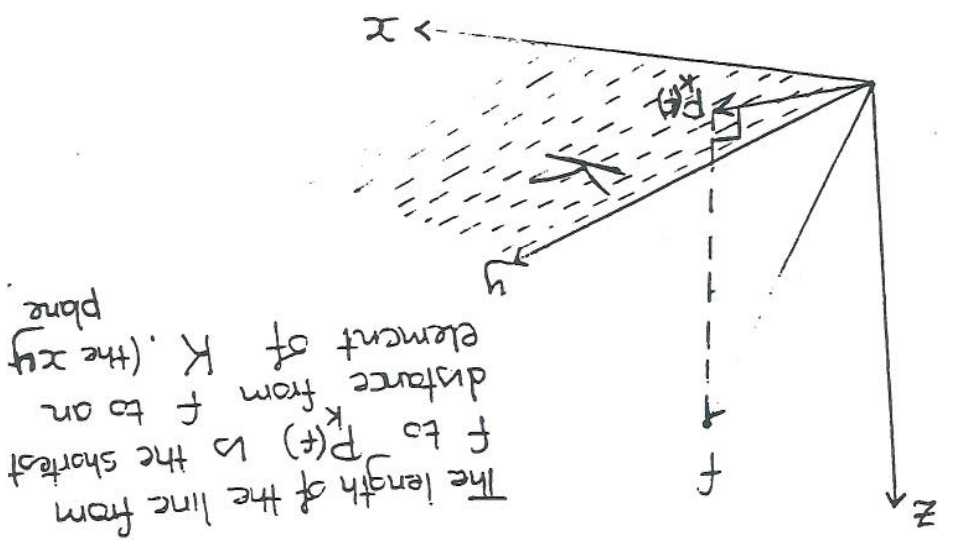 z
f
The length of the line from
f to P_K(f) is the shortest
distance from f to an
element of K. (the xy
plane
y
K
P_K(f)
x